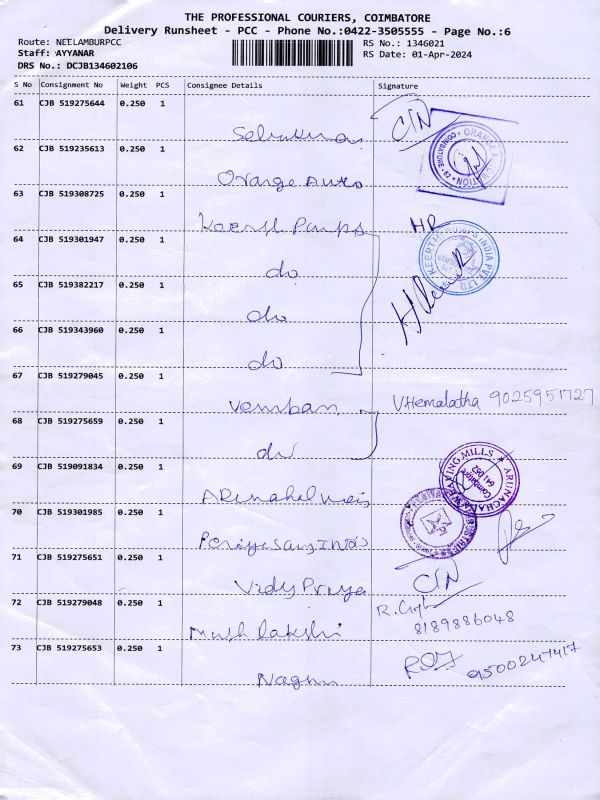 THE PROFESSIONAL COURIERS, COIMBATORE
Delivery Runsheet - PCC - Phone No.:0422-3505555 - Page No.:6
Route: NEELAMBURPCC RS No.: 1346021
Staff: AYYANAR RS Date: 01-Apr-2024
DRS No.: DCJB134602106
S No Consignment No Weight PCS Consignee Details Signature
61 CJB 519275644 0.250 1
Selvakumar
62 CJB 519235613 0.250 1
Orange Auto
63 CJB 519308725 0.250 1
Pumps HR
64 CJB 519301947 0.250 1
do
65 CJB 519382217 0.250 1
do
66 CJB 519343960 0.250 1
do
67 CJB 519279045 0.250 1
Vemban V.Hemalatha 9025951727
68 CJB 519275659 0.250 1
do
69 CJB 519091834 0.250 1
ARUNACHALA WEAVING MILLS Coimbatore 641 062
70 CJB 519301985 0.250 1
Periyasamy INDS
71 CJB 519275651 0.250 1
Vidy Priya
72 CJB 519279048 0.250 1
8189886048
73 CJB 519275653 0.250 1
9500247417